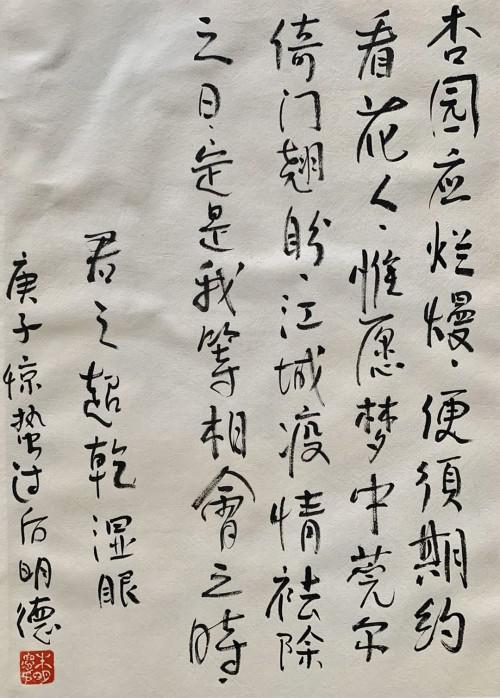 杏园应烂熳、便须期约
看花人、惟愿梦中莞尔
倚门翘盼、江城疫情祛除
之日、定是我等相會之時、
君之超乾湿眼
庚子惊蛰过后明德